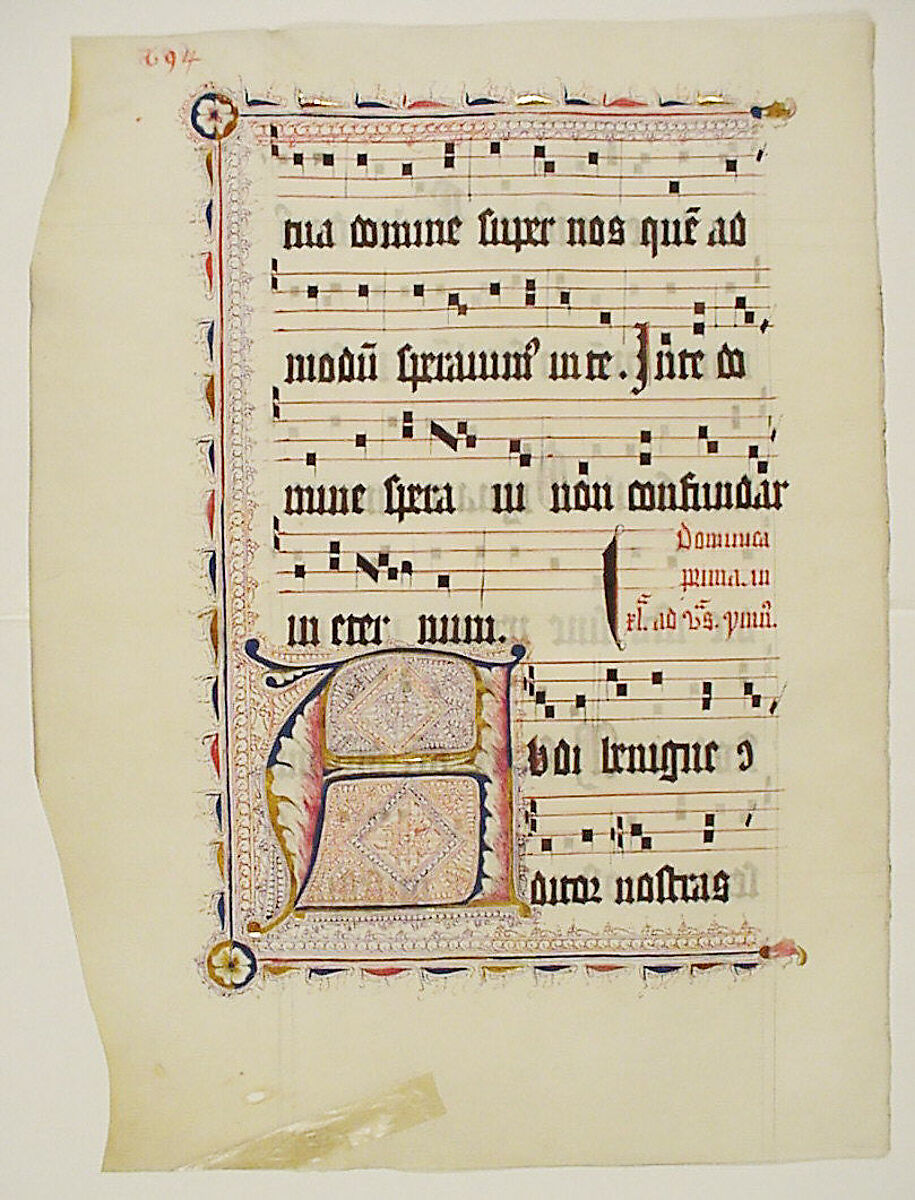 tua domine super nos quē ad
modū speravimꝰ in te. In te do
mine spera vi non confundar
in eter num.
Dominica
prima. in
xl. ad vs̄. ymn̄.
Audi benigne ↄ
ditor nostras